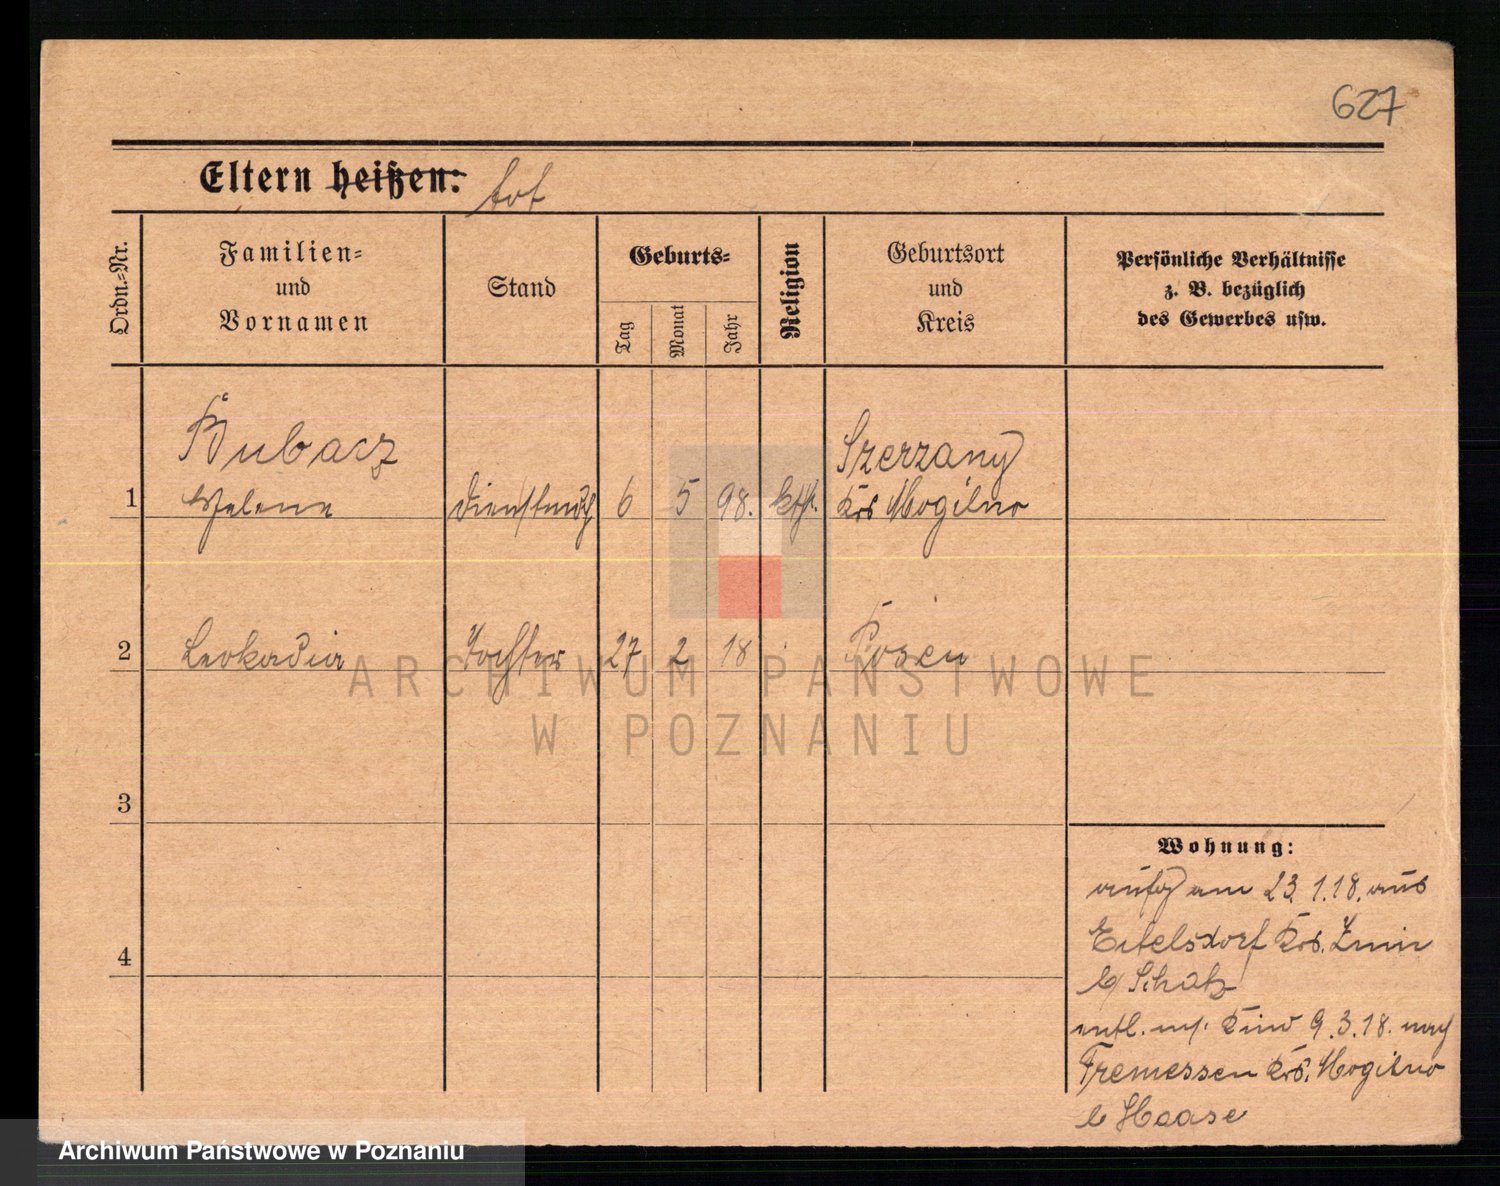 627
Eltern heißen: tot
Ordn.-Nr.
Familien-
und
Vornamen
Stand
Geburts-
Tag
Monat
Jahr
Religion
Geburtsort
und
Kreis
Persönliche Verhältnisse
z. B. bezüglich
des Gewerbes usw.
Kubacz
Szerzany
1 Helene Dienstmdch 6 5 98. kth. Krs Mogilno
2 Leokadia Tochter 27 2 18 Posen
3
4
Wohnung:
aufg am 23.1.18. aus
Eitelsdorf Krs. Znin
b/ Schatz
entl. m/. Kind 9.3.18. nach
Tremessen Krs. Mogilno
b Haase
ARCHIWUM PAŃSTWOWE
W POZNANIU
Archiwum Państwowe w Poznaniu